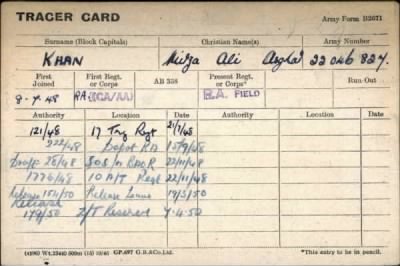 TRACER CARD
Army Form B2671
Surname (Block Capitals) Christian Name(s) Army Number
KHAN Mirza Ali Asghar 22046827.
First Joined First Regt. or Corps* AB 358 Present Regt. or Corps* Run-Out
8-7-48 RA (CA/AA) R.A. FIELD
Authority Location Date Authority Location Date
121/48 17 Trg Regt 21/7/48
222/48 Depot RA 15/9/48
28/48 SOS 22/11/48
1776/48 10 A/T Regt 22/11/48
Release 154/50 Release Leave 19/3/50
Release
179/50 Z/T Reserve 7.4.50
G.B.&Co.Ltd. *This entry to be in pencil.